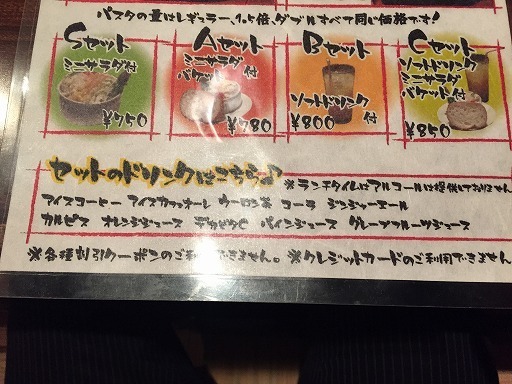 パスタの量はレギュラー、1.5倍、ダブルすべて同じ価格です!
Sセット
ミニサラダ付
¥750
Aセット
ミニサラダ
バケット付
¥780
Bセット
ソフトドリンク付
¥800
Cセット
ソフトドリンク
ミニサラダ
バケット付
¥850
セットのドリンクはこちら
※ランチタイムはアルコールは提供しておりません
アイスコーヒー アイスカフェオーレ ウーロン茶 コーラ ジンジャーエール
カルピス オレンジジュース パインジュース グレープフルーツジュース
※各種割引クーポンのご利用できません。※クレジットカードのご利用できません